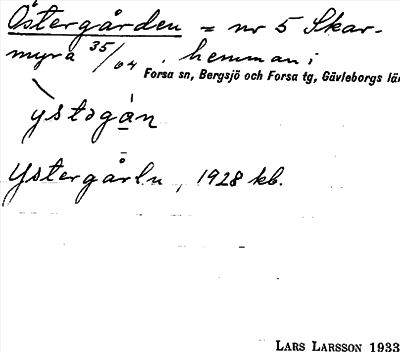 Östergården = nr 5 Skar-
myra 35/64, hemman i
Forsa sn, Bergsjö och Forsa tg, Gävleborgs län
ỳstogån
Ystergårln, 1928 kb.
LARS LARSSON 1933